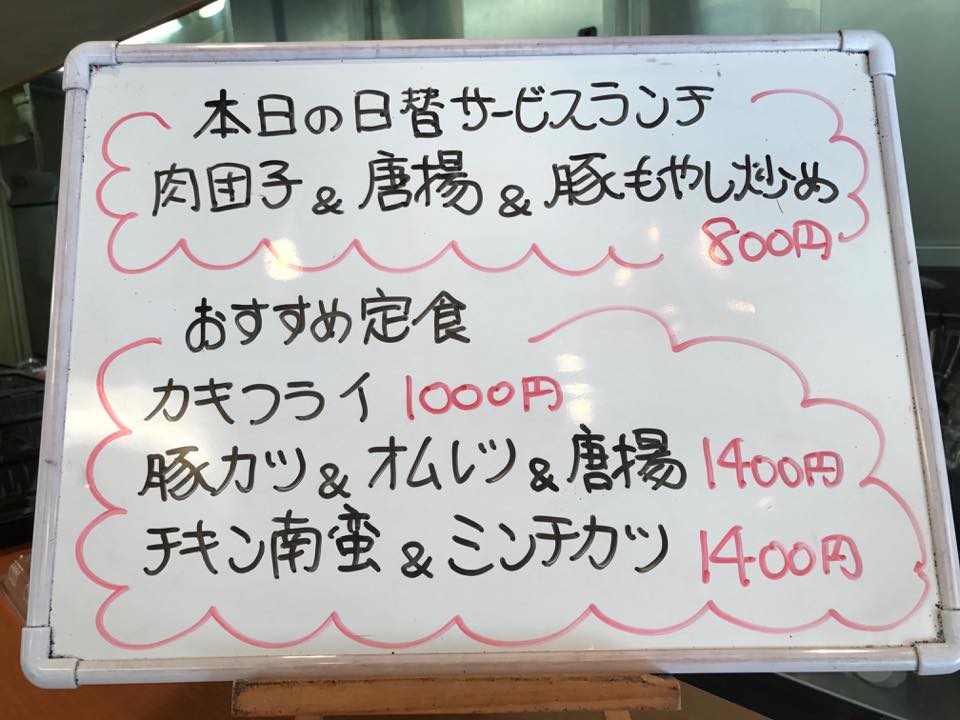 本日の日替サービスランチ
肉団子&唐揚&豚もやし炒め
800円
おすすめ定食
カキフライ 1000円
豚カツ&オムレツ&唐揚 1400円
チキン南蛮&ミンチカツ 1400円